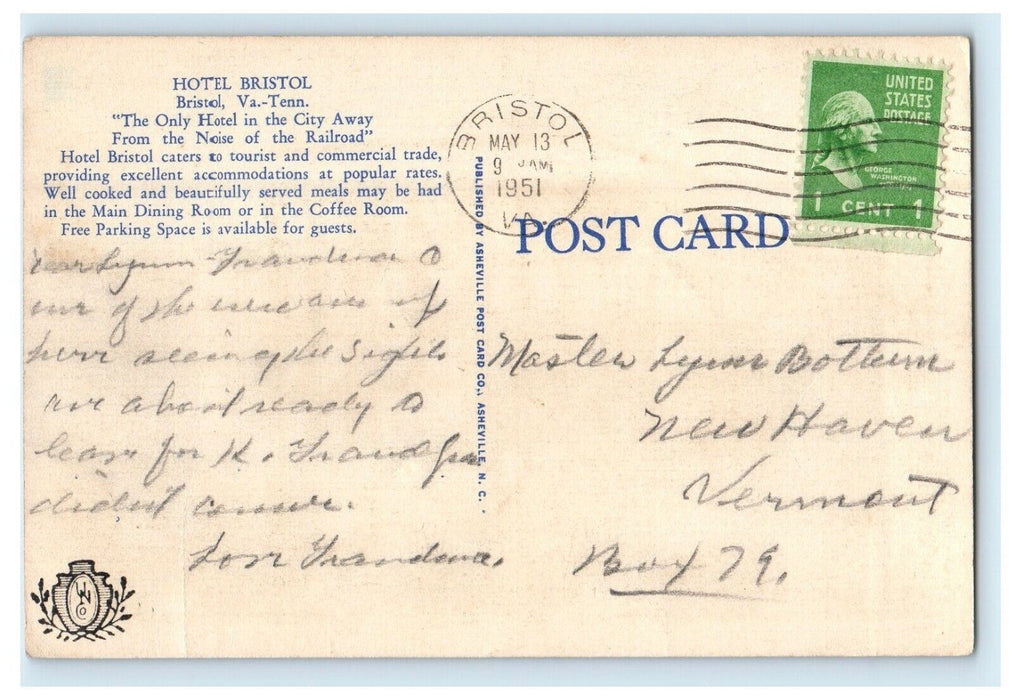 HOTEL BRISTOL
Bristol, Va.-Tenn.
"The Only Hotel in the City Away
From the Noise of the Railroad"
Hotel Bristol caters to tourist and commercial trade,
providing excellent accommodations at popular rates.
Well cooked and beautifully served meals may be had
in the Main Dining Room or in the Coffee Room.
Free Parking Space is available for guests.
Dear Lynn - Grandma &
of the
here seeing the sights
are about ready to
leave for K. Grandpa
didn't come.
Love Grandma.
PUBLISHED BY ASHEVILLE POST CARD CO., ASHEVILLE, N. C.
BRISTOL
MAY 13
9 AM
1951
VA.
UNITED
STATES
POSTAGE
GEORGE
WASHINGTON
1 CENT 1
POST CARD
Master Lynn Bottum
New Haven
Vermont
Box 79.